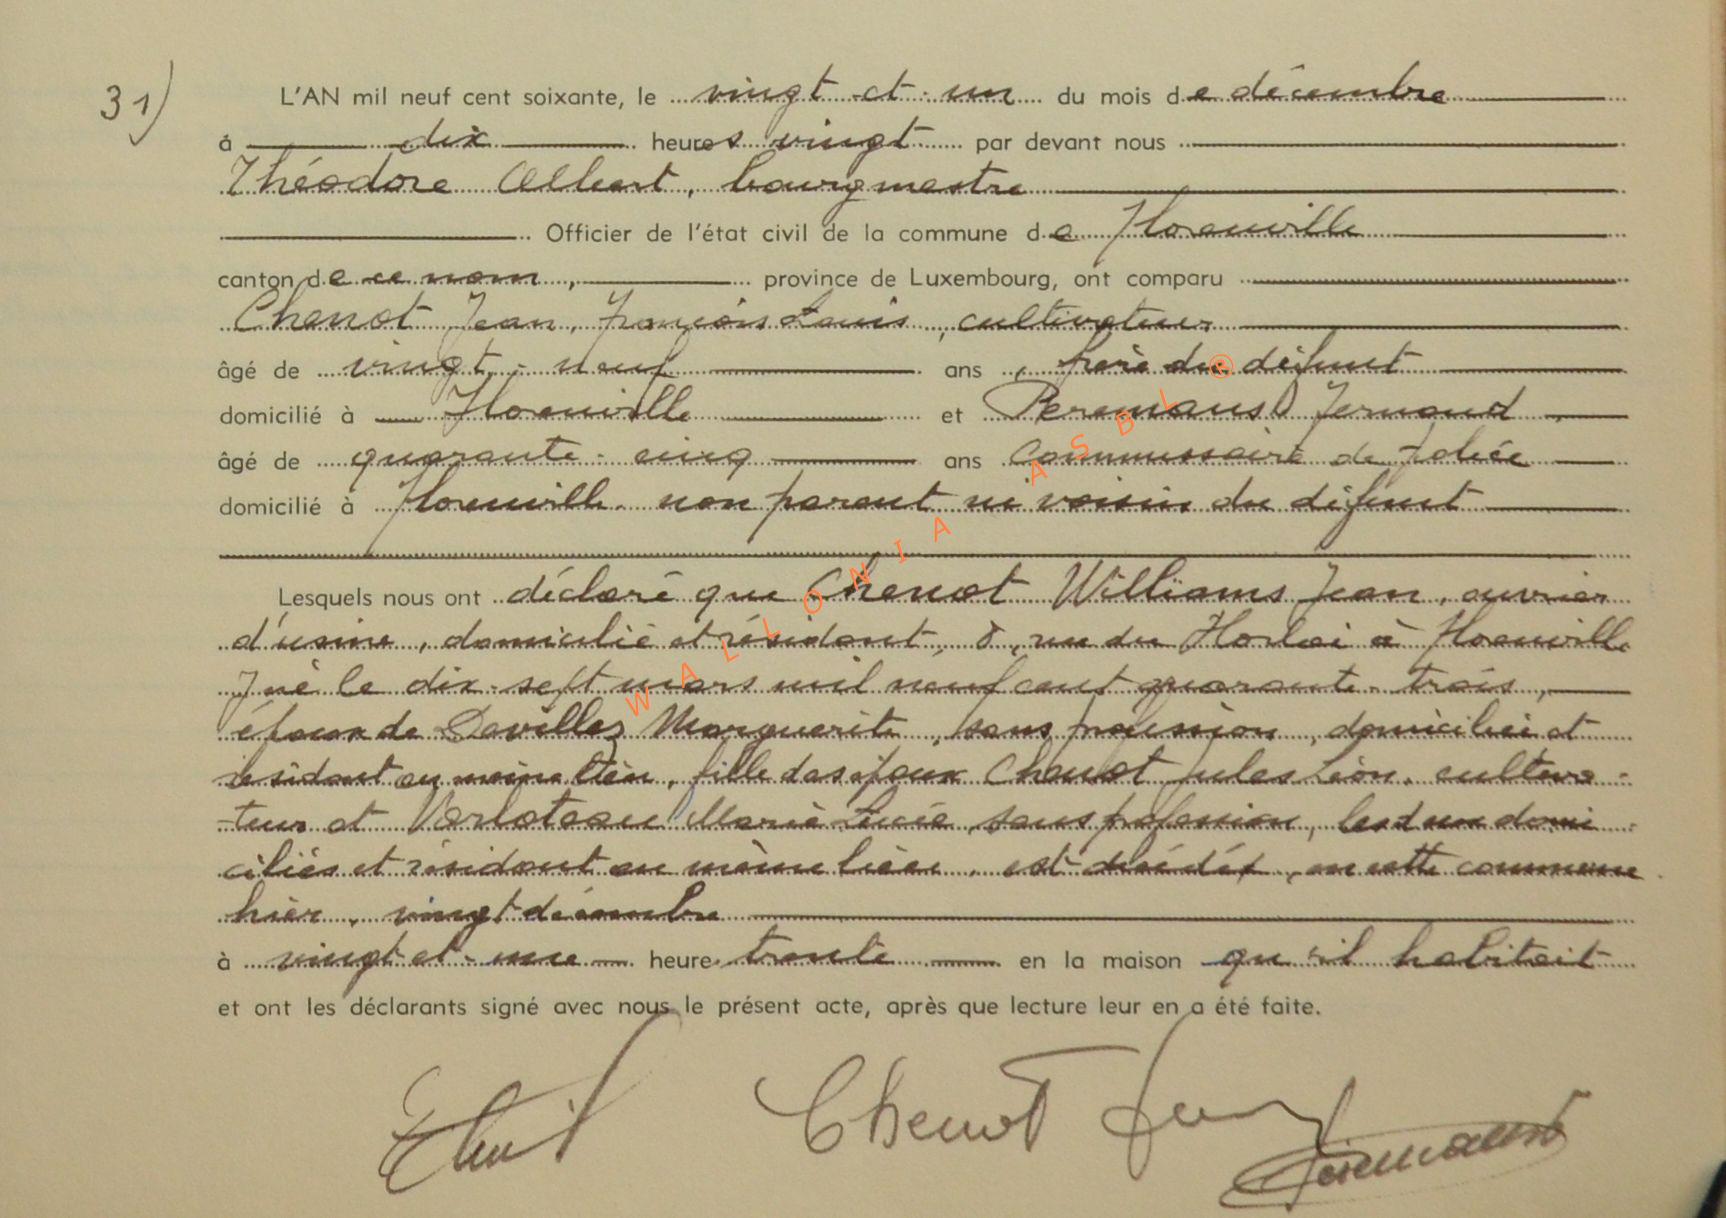 31)
L'AN mil neuf cent soixante, le vingt et un du mois de décembre
à dix heures vingt par devant nous
Théodore Albert, bourgmestre
Officier de l'état civil de la commune de Florenville
canton de ce nom, province de Luxembourg, ont comparu
Chenot Jean, François Louis, cultivateur
âgé de vingt-neuf ans, frère du défunt
domicilié à Florenville et Peremans Fernand
âgé de quarante-cinq ans Commissaire de Police
domicilié à Florenville non parent ni voisin du défunt
Lesquels nous ont déclaré que Chenot Williams Jean, ouvrier
d'usine, domicilié et résidant, 8, rue du à Florenville
y né le dix-sept mars mil neuf cent quarante-trois,
époux de Davillez Marguerite, sans profession, domiciliée et
résidant au même lieu, fille des époux Chenot Jules Léon, cultiva-
teur et Varloteau Marie Lucie, sans profession, les deux domi-
ciliés et résidant au même lieu, est décédé, en cette commune
hier, vingt décembre
à vingt et une heure trente en la maison qu'il habitait
et ont les déclarants signé avec nous le présent acte, après que lecture leur en a été faite.
Chenot Jean
Peremans
WALLONIA ASBL ®